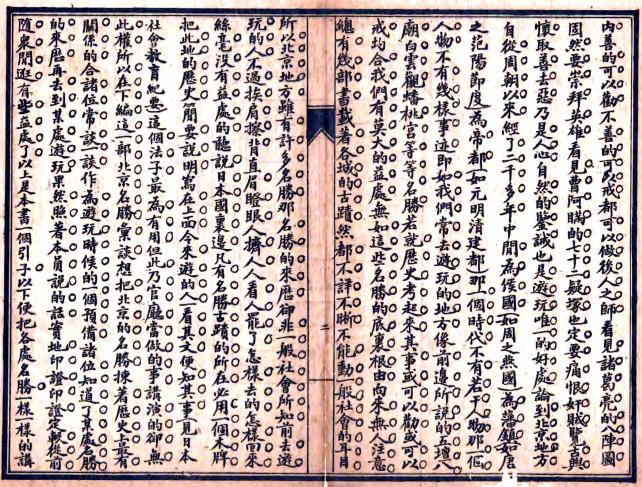 內善的可以勸不善的可以戒都可以做後人之師看見諸葛亮的八陣圖
固然要崇拜英雄看見曹阿瞞的七十二疑塚也定要痛恨奸賊覽古興
懷取善去惡乃是人心自然的鑒誡也是遊玩唯一的好處論到北京地方
自從周朝以來經了二千多年中間為侯國如周之燕國為藩鎮如唐
之范陽節度為帝都如元明清建都那一個時代不有若干人物那一個
人物不有幾樣事迹即如我們常去遊玩的地方像前邊所說的五壇八
廟白雲觀蟠桃宮等等名勝若就歷史考起來其事或可以勸或可以
戒均合我們有莫大的益處無如這些名勝的底裏根由向來無人注意
總有幾部書載著各城的古蹟然都不詳不晰不能動一般社會的耳目
二
所以北京地方雖有許多名勝那名勝的來歷卻非一般社會所知前去遊
玩的人不過挨肩擦背直眉瞪眼人擠人人看人罷了怎樣去的怎樣回來
絲毫沒有益處的聽說日本國裏邊凡有名勝古蹟的所在必用一個木牌
把此地的歷史簡要說明寫在上面令來遊的人一看其文便知其事見日本
社會教育紀要這個法子最為有用但此乃官廳當做的事講演的卻無
此權所以在下編這一部北京名勝彙談想把北京的名勝揀着歷史上最有
關係的合諸位常談一談作為遊玩時候的一個預備諸位知道了某處名勝
的來歷再去到某處遊玩果然照著本員說的話實地印證印證定較從前
隨眾閒逛有些益處了以上是本書一個引子以下便把各處名勝一樣一樣的講